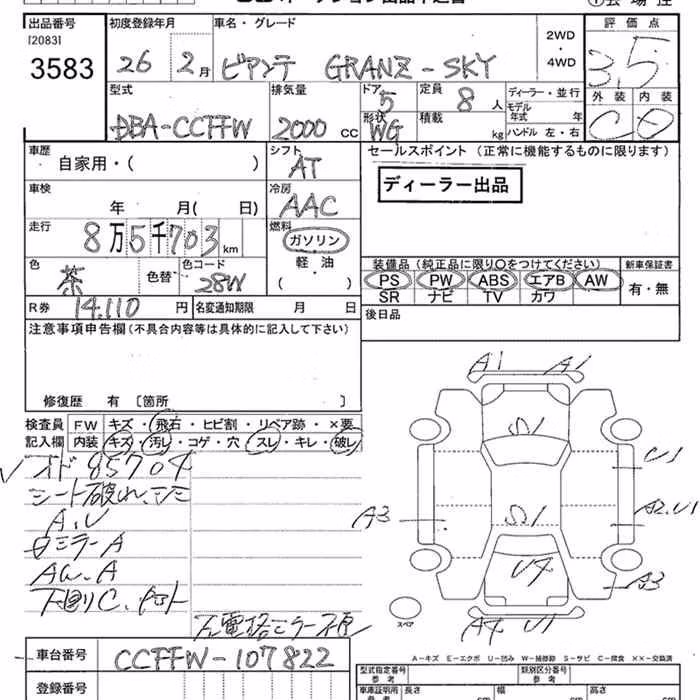 出品番号
[2083]
3583
初度登録年月
26 2月
車名・グレード
ビアンテ GRANZ-SKY
2WD
・
4WD
評価点
3.5
型式
DBA-CCFFW
排気量
2000 cc
ドア
5
形状
WG
定員
8人
積載
kg
ディーラー・並行
モデル
年式 年
ハンドル 左・右
外装 内装
C D
車歴
自家用・( )
シフト
AT
セールスポイント (正常に機能するものに限ります)
ディーラー出品
車検
年 月( 日)
冷房
AAC
走行
8万5千703km
燃料
ガソリン
軽・油
( )
色
茶
色替
色コード
28W
装備品(純正品に限り○をつけてください)
PS PW ABS エアB AW
SR ナビ TV カワ
新車保証書
有・無
R券
14,110円
名変通知期限 月 日
後日品
注意事項申告欄(不具合内容等は具体的に記入して下さい)
修復歴 有 [箇所 ]
検査員
記入欄
FW キズ・飛石・ヒビ割・リペア跡・×要
内装 キズ・汚レ・コゲ・穴・スレ・キレ・破レ
オド85704
シート破れ、シミ
A、U
ミラーA
AW、A
下回りC、
電格ミラー不良
A1 A1
S1
U1
A3
S1
A2、U1
U4
A3
スペア
A4 U1
A-キズ E-エクボ U-凹み W-補修跡 S-サビ C-腐食 ××-交換済
車台番号
CCFFW-107822
登録番号
型式指定番号
参考
類別区分番号
参考
車庫証明用
参考
長さ
cm
幅
cm
高さ
cm